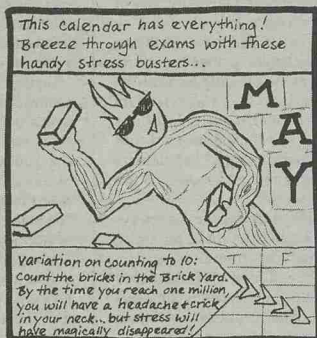 This calendar has everything!
Breeze through exams with these
handy stress busters...
M
A
Y
T F
Variation on counting to 10:
Count the bricks in the Brick Yard.
By the time you reach one million,
you will have a headache + crick
in your neck... but stress will
have magically disappeared!